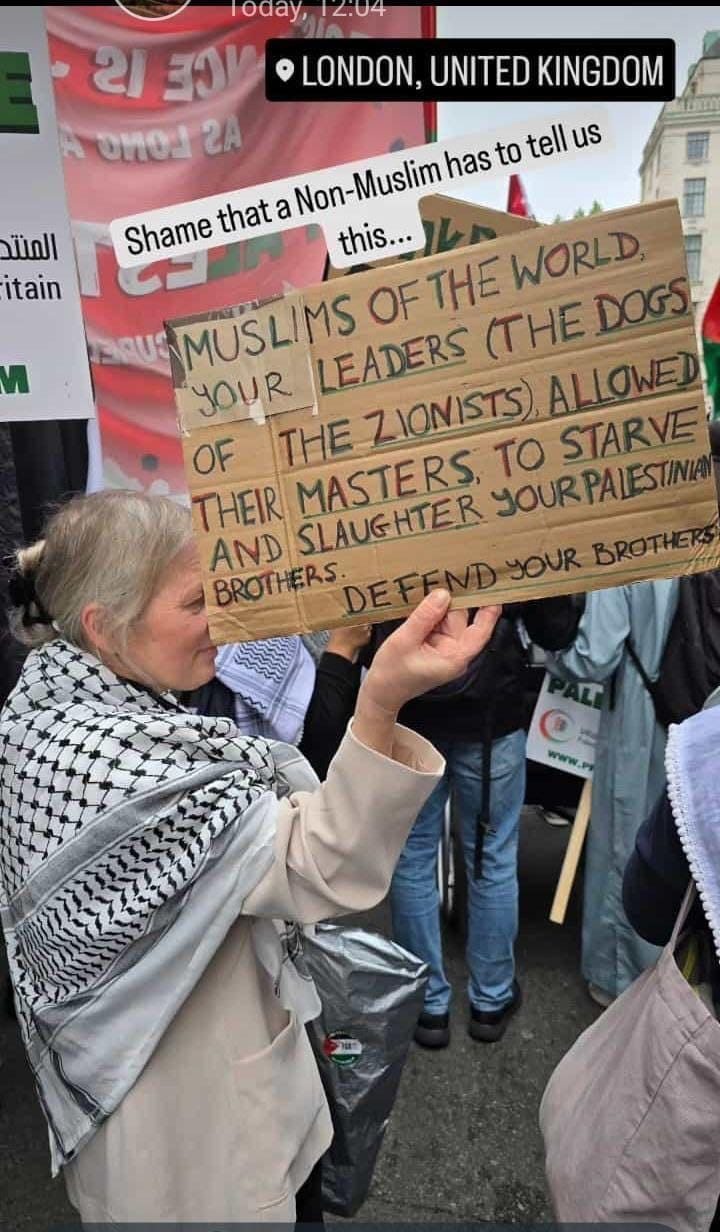 Today, 12:04
LONDON, UNITED KINGDOM
Shame that a Non-Muslim has to tell us
this...
MUSLIMS OF THE WORLD,
YOUR LEADERS (THE DOGS
OF THE ZIONISTS), ALLOWED
THEIR MASTERS, TO STARVE
AND SLAUGHTER YOUR PALESTINIAN
BROTHERS.
DEFEND YOUR BROTHERS
IS
AS LONG A